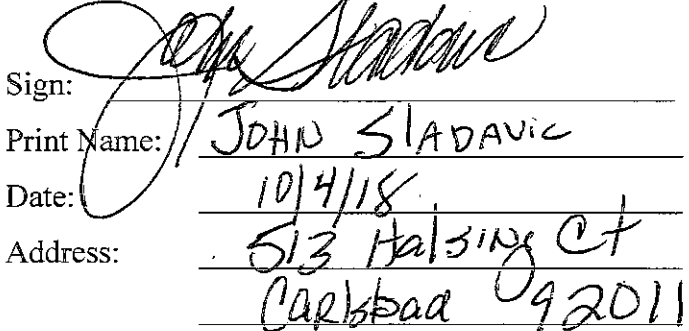 Sign: John Sladavic
Print Name: JOHN SlADAVIC
Date: 10/4/18
Address: 513 Halsing Ct
Carlsbad 92011